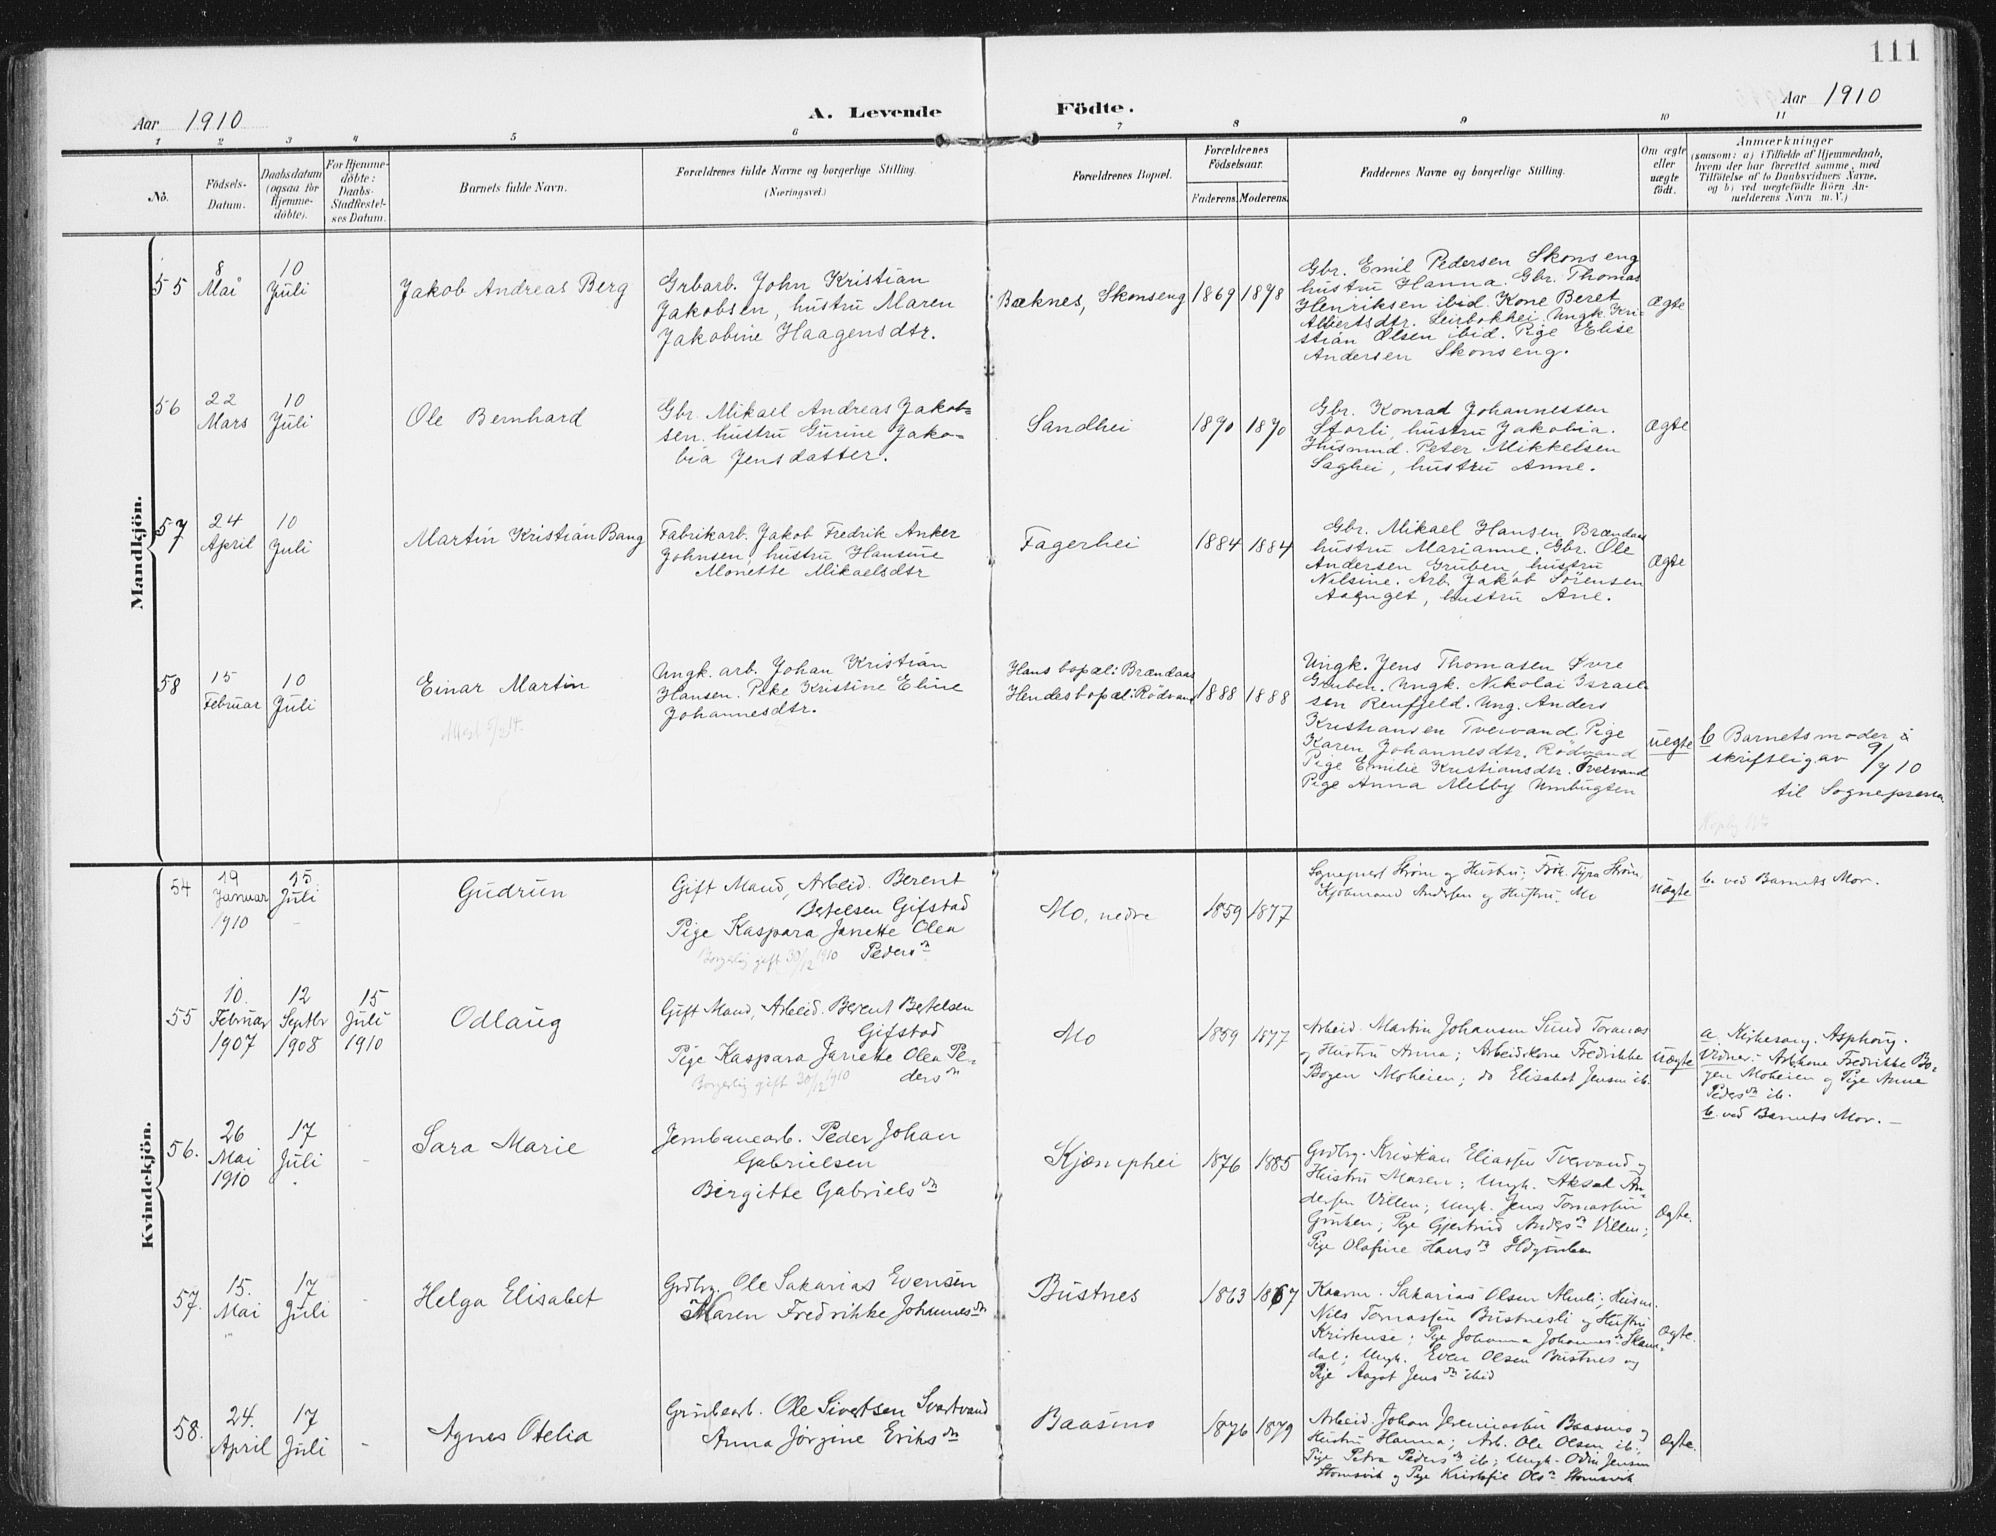 111
Aar 1910
A. Levende Födte.
Aar 1910
1 2 3 4 5 6 7 8 9 10 11
No.
Födsels-
Datum.
Daabsdatum
(ogsaa for
Hjemme-
döbte).
For Hjemme-
döbte:
Daabs-
Stadfæstel-
ses Datum.
Barnets fulde Navn.
Forældrenes fulde Navne og borgerlige Stilling.
(Næringsvei.)
Forældrenes Bopæl.
Forældrenes
Födselsaar.
Faderens. Moderens.
Faddernes Navne og borgerlige Stilling.
Om ægte
eller
uægte
födt.
Anmærkninger
(saasom: a) i Tilfælde af Hjemmedaab,
hvem der har forrettet samme, med
Tilföielse af to Daabsvidners Navne,
og b) ved uægtefödte Börn An-
melderens Navn m. V.)
Mandkjön.
55
8
Mai
10
Juli
Jakob Andreas Berg
Grbarb. John Kristian
Jakobsen, hustru Maren
Jakobine Haagensdtr.
Bæknes, Skonseng
1869 1878
Gbr. Emil Pedersen Skonseng
hustru Hanna. Gbr. Thomas
Henriksen ibid. Kone Beret
Albertsdtr. Leirbokhei, Ungk. Kri-
stian Olsen ibid. Pige Elise
Andersen Skonseng.
Ægte
56
22
Mars
10
Juli
Ole Bernhard
Gbr. Mikael Andreas Jakob=
sen. hustru Gurine Jako=
bia Jensdatter.
Sandhei
1870 1870
Gbr. Konrad Johannessen
Storli, hustru Jakobia.
Husmnd. Peter Mikkelsen
Saghei, hustru Anne.
Ægte
57
24
April
10
Juli
Martin Kristian Bang
Fabrikarb. Jakob Fredrik Anker
Johnsen, hustru Hansine
Monette Mikaelsdtr
Fagerhei
1884 1884
Gbr. Mikael Hansen Brændaas
hustru Marianne. Gbr. Ole
Andersen Gruben, hustru
Nilsine. Arb. Jakob Sörensen
hustru Ane.
Ægte
58
15
Februar
10
Juli
Einar Martin
Ungk. arb. Johan Kristian
Hansen. Pike Kristine Eline
Johannesdtr.
Hans bopæl: Brændaas
Hendes bopæl: Rödvand
1888 1888
Ungk. Jens Thomasen Øvre
Gruben. Ungk. Nikolai Israel-
sen Renfjeld. Ung. Anders
Kristiansen Tvervand. Pige
Karen Johannesdtr. Rödvand
Pige Emilie Kristiansdtr. Tvervand
Pige Anna Melby Umbugten
uegte
b Barnets moder i
skriftlig av 9/7 10
til Sognepresten
Kvindekjön.
54
19
Januar
1910
15
Juli
Gudrun
Gift Mand, Arbeid. Berent
Betelsen Gifstad
Pige Kaspara Janette Olea
Pedersdr
Borgerlig gift 30/12 1910
Mo, nedre
1859 1877
Sogneprest Ström og Hustru; Frk. Tyra Ström,
Kjöbmand Andersen og Hustru. Mo
uægte
b. ved Barnets Mor.
55
10.
Februar
1907
12
Septbr
1908
15
Juli
1910
Odlaug
Gift Mand, Arbeid. Berent Betelsen
Gifstad
Pige Kaspara Janette Olea Pe-
dersdr
Borgerlig gift 30/12 1910
Mo
1859 1877
Arbeid. Martin Johansen Sund Toranes
og Hustru Anna; Arbeidskone Fredrikke
Bogen Moheien; do Elisabet Jensen ib.
Uægte
a. Kirkesang. Asphoug.
Vidner: Arbkone Fredrikke Bo-
gen Moheien og Pige Anne
Pedersdr ib.
b. ved Barnets Mor. –
56.
26
Mai
1910
17
Juli
Sara Marie
Jernbanearb. Peder Johan
Gabrielsen
Birgitte Gabrielsdr
Kjæmphei
1876 1885
Grdbrg. Kristian Eliassen Tvervand og
Hustru Maren; Ungk. Aksel An-
dersen Villen; Ungk. Jens Tomassen
Gruben; Pige Gjertrud Andersdr Villen;
Pige Olafine Hansdr
Ægte.
57.
15.
Mai
17
Juli
Helga Elisabet
Grdbrg. Ole Sakarias Evensen
Maren Fredrikke Johannesdr
Bustnes
1863 1867
Sakarias Olsen Husm.
Nils Tomassen Bustnesli og Hustru
Kristense; Pige Johanna Johannesdr
Ungk. Even Olsen Bustnes og
Pige Aagot Jensdr ibid
Ægte.
58.
24.
April
17
Juli
Agnes Otelia
Grubearb. Ole Sivertsen Svartvand
Anna Jörgine Eriksdr
Baasmo
1876 1879
Arbeid. Johan Jeremiassen Baasmo og
Hustru Hanna; Arb. Ole Olsen ib;
Pige Petra Pedersdr ib; Ungk. Odin Jensen
Storsvik og Pige Kristofie Olsdr Storsvik
Ægte.